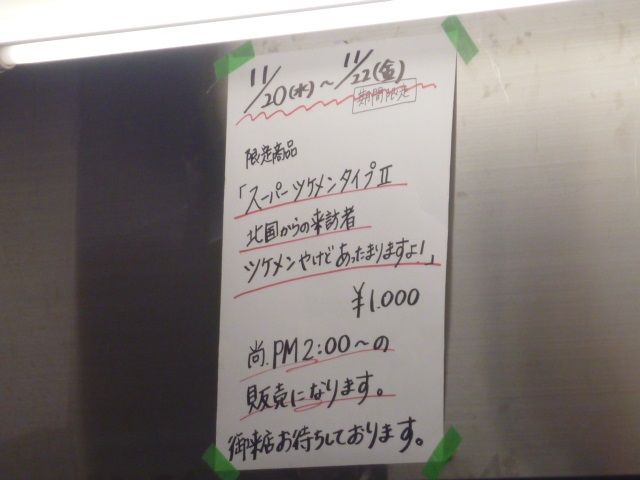 11/20(水)～11/22(金)
期間限定
限定商品
「スーパーツケメンタイプII
北国からの来訪者
ツケメンやけどあったまりますよ!」
¥1.000
尚.PM2:00～の
販売になります。
御来店お待ちしております。